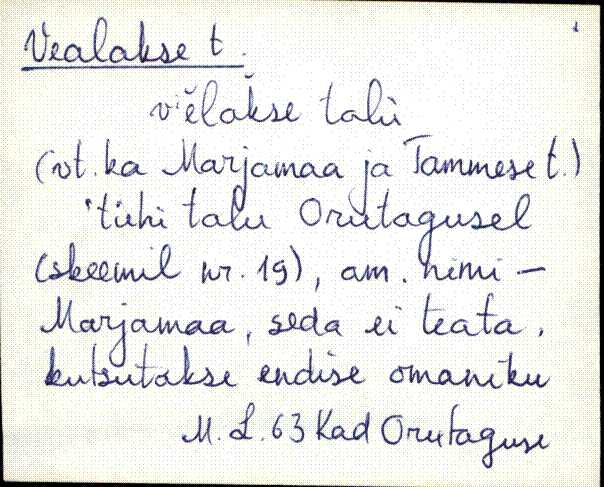 Vealakse t.
viĕlaksĕ talu
(vt. ka Marjamaa ja Tammese t.)
'tühi talu Orutagusel
(skeemil nr. 19), am. nimi –
Marjamaa, seda ei teata,
kutsutakse endise omaniku
M. L. 63 Kad Orutaguse